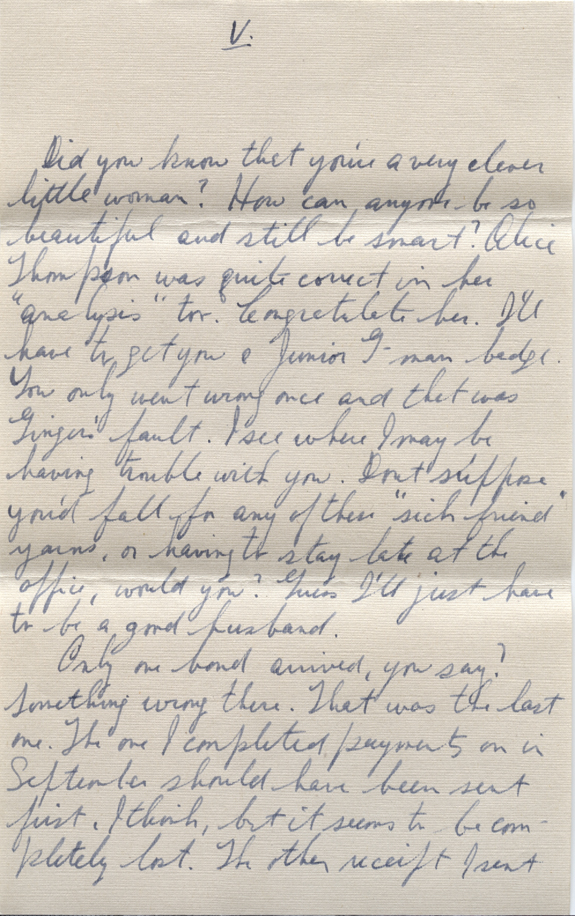 V.
Did you know that you're a very clever
little woman? How can anyone be so
beautiful and still be smart? Alice
Thompson was quite correct in her
"analysis" too. Congratulate her. I'll
have to get you a Junior G-man badge.
You only went wrong once and that was
Ginger's fault. I see where I may be
having trouble with you. Don't suppose
you'd fall for any of these "sick friend"
yarns, or having to stay late at the
office, would you? Guess I'll just have
to be a good husband.
Only one bond arrived, you say?
Something wrong there. That was the last
one. The one I completed payments on in
September should have been sent
first, I think, but it seems to be com-
pletely lost. The other receipt I sent